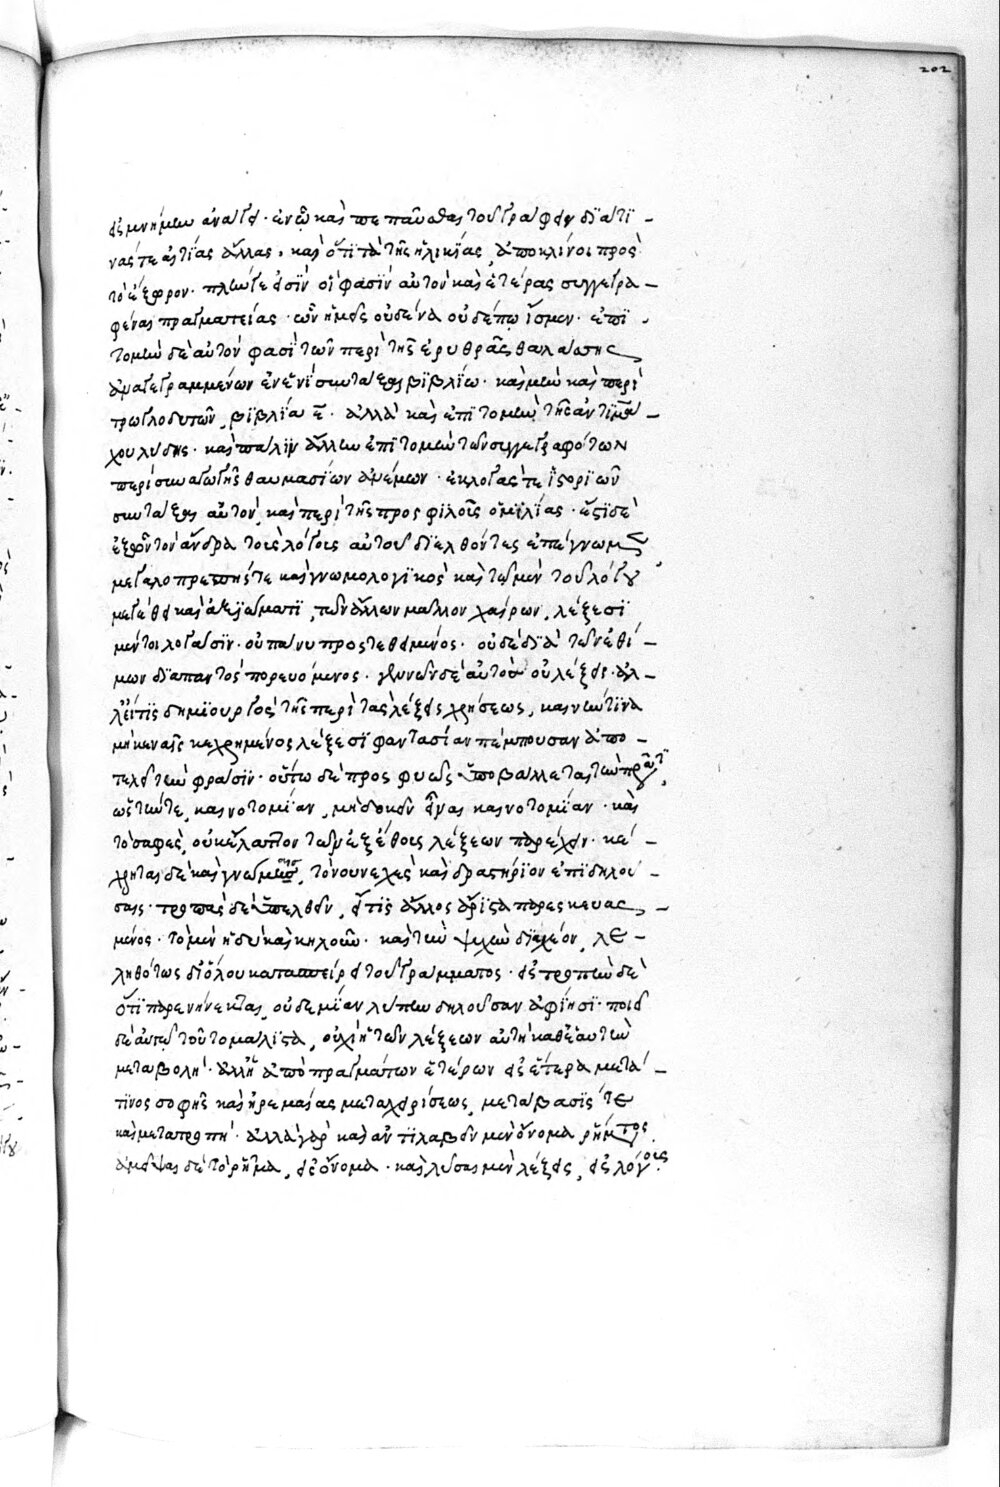 εἰς μνήμην ἀνάγει· ἐν ᾧ καὶ πεπαῦσθαι τοῦ γράφειν διά τι-
νάς τε αἰτίας ἄλλας, καὶ ὅτι τὰ τῆς ἡλικίας, ἀποκλίνοι πρὸς
τὸ ἔξωρον. πλὴν γε εἰσὶν οἵ φασιν αὐτὸν καὶ ἑτέρας συγγεγρα-
φέναι πραγματείας· ὧν ἡμεῖς οὐδένα οὐδέπω ἴσμεν. ἐπι-
τομὴν δὲ αὐτόν φασι τῶν περὶ τῆς ἐρυθρᾶς θαλάσσης
ἀναγεγραμμένων ἐν ἑνὶ συντάξαι βιβλίω· καὶ μὴν καὶ περὶ
τρωγλοδυτῶν, βιβλία ε̅· ἀλλὰ καὶ ἐπιτομὴν τῆς ἀντιμά-
χου λύδης· καὶ πάλιν ἄλλην ἐπιτομὴν τῶν συγγεγραφότων
περὶ συναγωγῆς θαυμασίων ἀνέμων· ἐκλογάς τε ἱστοριῶν
συντάξαι αὐτόν, καὶ περὶ τῆς πρὸς φίλους ὁμιλίας· ἔστι δὲ
ἐξ ὧν τὸν ἄνδρα τοῖς λόγοις αὐτοῦ διελθόντες ἐπέγνωμεν
μεγαλοπρεπής τε καὶ γνωμολογικὸς καὶ τῶ μὲν τοῦ λόγου
μεγέθει καὶ ἀξιώματι, τῶν ἄλλων μᾶλλον χαίρων, λέξεσι
μέντοι λογάσιν· οὐ πάνυ προστεθειμένος· οὐδὲ διὰ τῶν ἐθί-
μων διαπαντὸς πορευόμενος· γεννῶν δὲ αὐτὸς οὐ λέξεις· ἀλ-
λ' εἴ τις δημιουργὸς τῆς περὶ τὰς λέξεις χρήσεως, καινήν τινα
μὴ κεναῖς κεχρημένος λέξεσι φαντασίαν πέμπουσαν ἀπο-
τελεῖ τὴν φράσιν· οὕτω δὲ προσφυῶς ὑποβάλλεται τὴν πραγματ
ὡς τήν τε, καινοτομίαν, μὴ δοκεῖν εἶναι καινοτομίαν· καὶ
τὸ σαφές, οὐκ ἔλαττον τῶν ἐξ ἔθους λέξεων παρέχειν· κέ-
χρηται δὲ καὶ γνώμαις, τὸ νουνεχὲς καὶ δραστήριον ἐπιδηλού-
σαις· τροπὰς δὲ ὑπελθεῖν, εἴ τις ἄλλος ἄριστα παρεσκευασ-
μένος· τὸ μὲν ἡδὺ καὶ κηλοῦν· καὶ τὴν ψυχὴν διαχέον, λε-
ληθότως δι' ὅλου κατασπείρει τοῦ γράμματος· εἰς τροπὴν δὲ
ὅτι παρενήνεκται, οὐδεμίαν λύπην δηλοῦσαν ἀφίησι· ποιεῖ
δὲ αὐτῶ τοῦτο μάλιστα, οὐχ ἡ τῶν λέξεων αὐτὴ καθ' ἑαυτὴν
μεταβολή· ἀλλ' ἡ ἀπὸ πραγμάτων ἑτέρων εἰς ἕτερα μετά
τινος σοφῆς καὶ ἠρεμαίας μεταχειρίσεως, μετάβασίς τε
καὶ μετατροπή· ἀλλὰ γὰρ καὶ ἀντιλαβεῖν μὲν ὄνομα ῥήματος,
ἀμεῖψαι δὲ τὸ ῥῆμα, εἰς ὄνομα· καὶ λῦσαι μὲν λέξεις, εἰς λόγους·
202